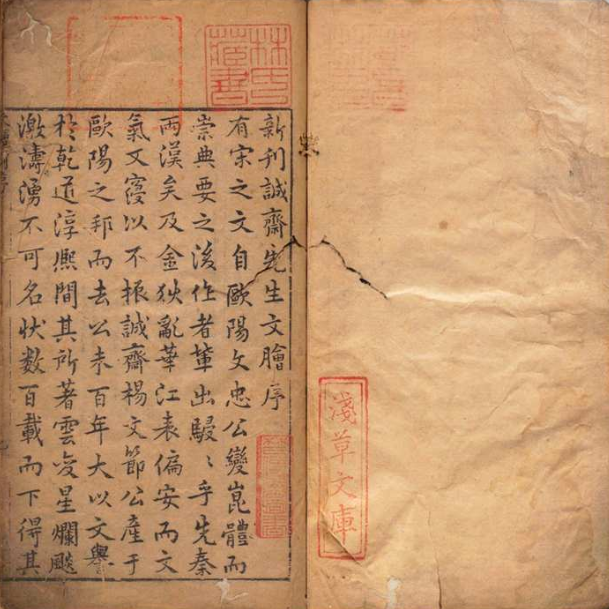 淺草文庫
林氏藏書
新刊誠齋先生文膾序
有宋之文自歐陽文忠公變崑體而
崇典要之後作者輩出駸〻乎先秦
兩漢矣及金狄亂華江表偏安而文
氣又寖以不振誠齋楊文節公產于
歐陽之邦而去公未百年大以文譽
於乾道淳熈間其所著雲变星爛飈
激濤湧不可名狀数百載而下得其